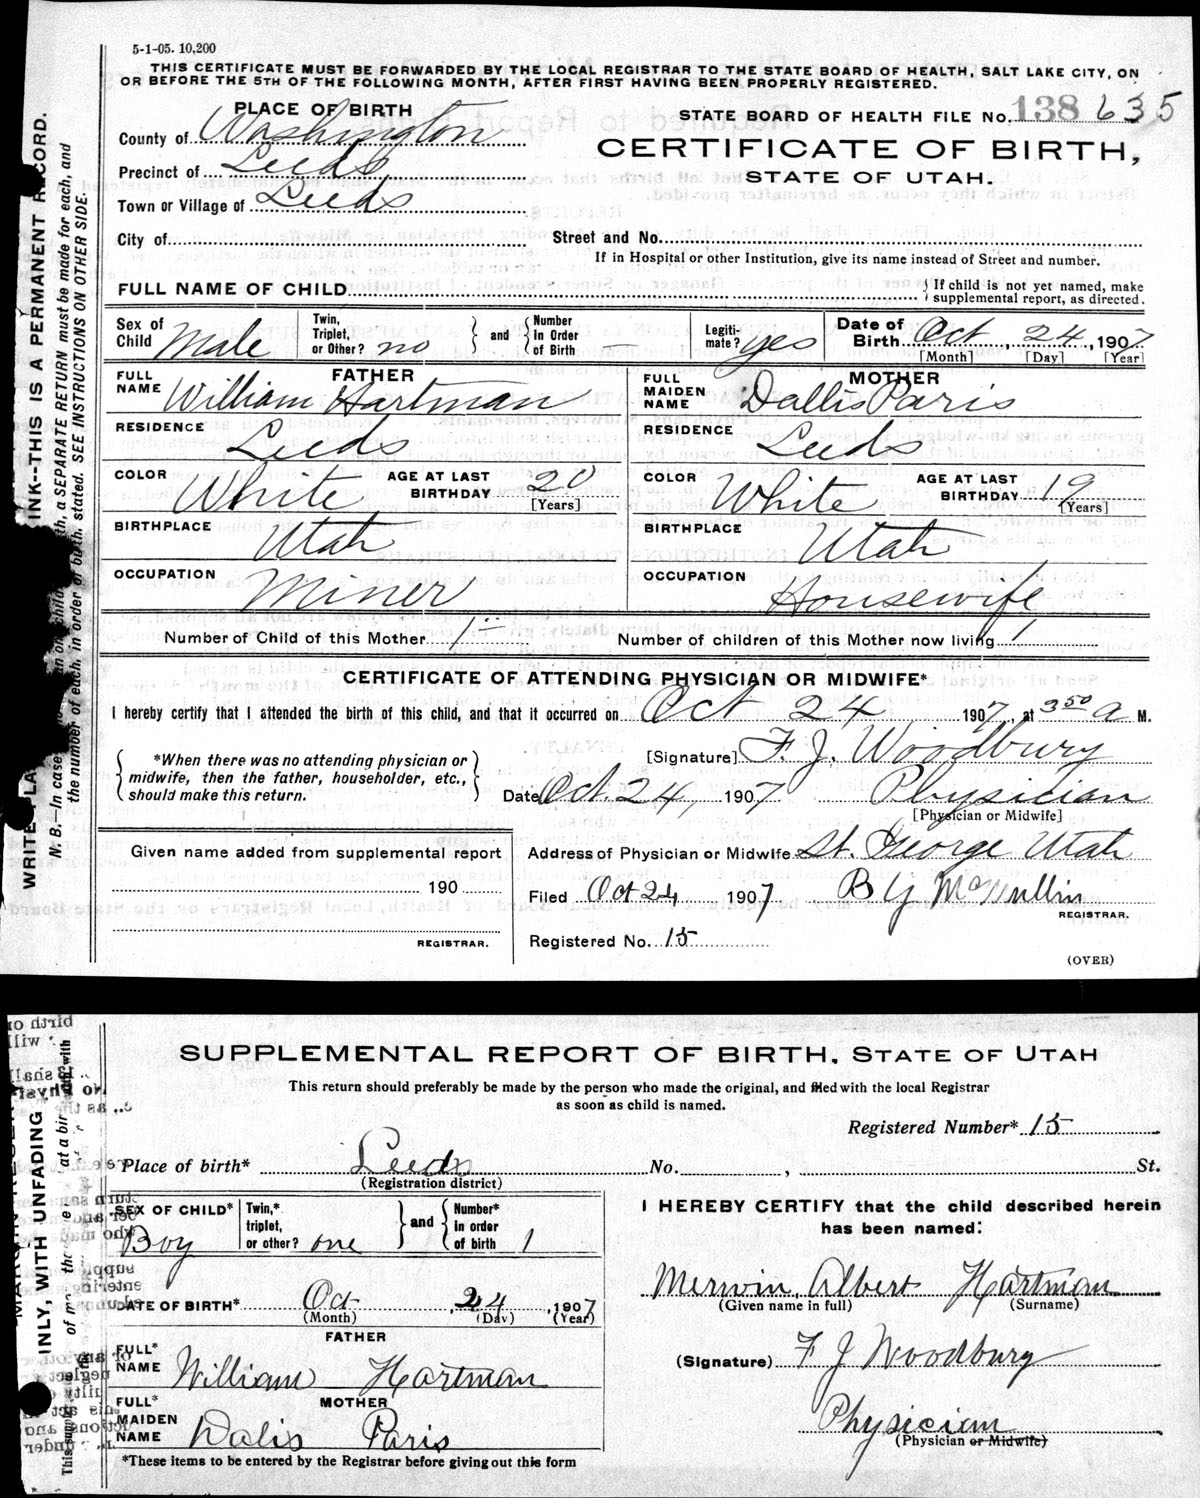 5-1-05. 10,200
THIS CERTIFICATE MUST BE FORWARDED BY THE LOCAL REGISTRAR TO THE STATE BOARD OF HEALTH, SALT LAKE CITY, ON
OR BEFORE THE 5TH OF THE FOLLOWING MONTH, AFTER FIRST HAVING BEEN PROPERLY REGISTERED.
PLACE OF BIRTH
STATE BOARD OF HEALTH FILE No. 138 635
County of Washington
CERTIFICATE OF BIRTH,
Precinct of Leeds
STATE OF UTAH.
Town or Village of Leeds
City of Street and No.
If in Hospital or other Institution, give its name instead of Street and number.
FULL NAME OF CHILD { If child is not yet named, make
supplemental report, as directed.
Sex of Child Male Twin, Triplet, or Other? no } and { Number In Order of Birth — Legiti-mate? yes Date of Birth Oct 24, 1907
[Month] [Day] [Year]
FATHER MOTHER
FULL NAME William Hartman FULL MAIDEN NAME Dallis Paris
RESIDENCE Leeds RESIDENCE Leeds
COLOR White AGE AT LAST BIRTHDAY 20 [Years] COLOR White AGE AT LAST BIRTHDAY 19 [Years]
BIRTHPLACE Utah BIRTHPLACE Utah
OCCUPATION Miner OCCUPATION Housewife
Number of Child of this Mother 1 Number of children of this Mother now living 1
CERTIFICATE OF ATTENDING PHYSICIAN OR MIDWIFE*
I hereby certify that I attended the birth of this child, and that it occurred on Oct 24 1907, at 3 50 a M.
{ *When there was no attending physician or
midwife, then the father, householder, etc.,
should make this return. }
[Signature] F. J. Woodbury
Date Oct. 24, 1907 Physician
[Physician or Midwife]
Given name added from supplemental report
Address of Physician or Midwife St. George Utah
190
Filed Oct 24 1907 B Y McMullin
REGISTRAR.
REGISTRAR.
Registered No. 15
(OVER)
INK--THIS IS A PERMANENT RECORD.
a SEPARATE RETURN must be made for each, and
the number of each, in order of birth, stated. SEE INSTRUCTIONS ON OTHER SIDE.
N. B.—In case
SUPPLEMENTAL REPORT OF BIRTH, STATE OF UTAH
This return should preferably be made by the person who made the original, and filed with the local Registrar
as soon as child is named.
Registered Number* 15
Place of birth* Leeds No. , St.
(Registration district)
SEX OF CHILD* Boy Twin,* triplet, or other? one } and { Number* in order of birth 1
I HEREBY CERTIFY that the child described herein
has been named:
Merwin Albert Hartman
(Given name in full) (Surname)
DATE OF BIRTH* Oct 24, 1907
(Month) (Day) (Year)
FATHER
FULL* NAME William Hartman
(Signature) F J Woodbury
MOTHER
FULL* MAIDEN NAME Dalis Paris
Physician
(Physician or Midwife)
*These items to be entered by the Registrar before giving out this form
INLY, WITH UNFADING